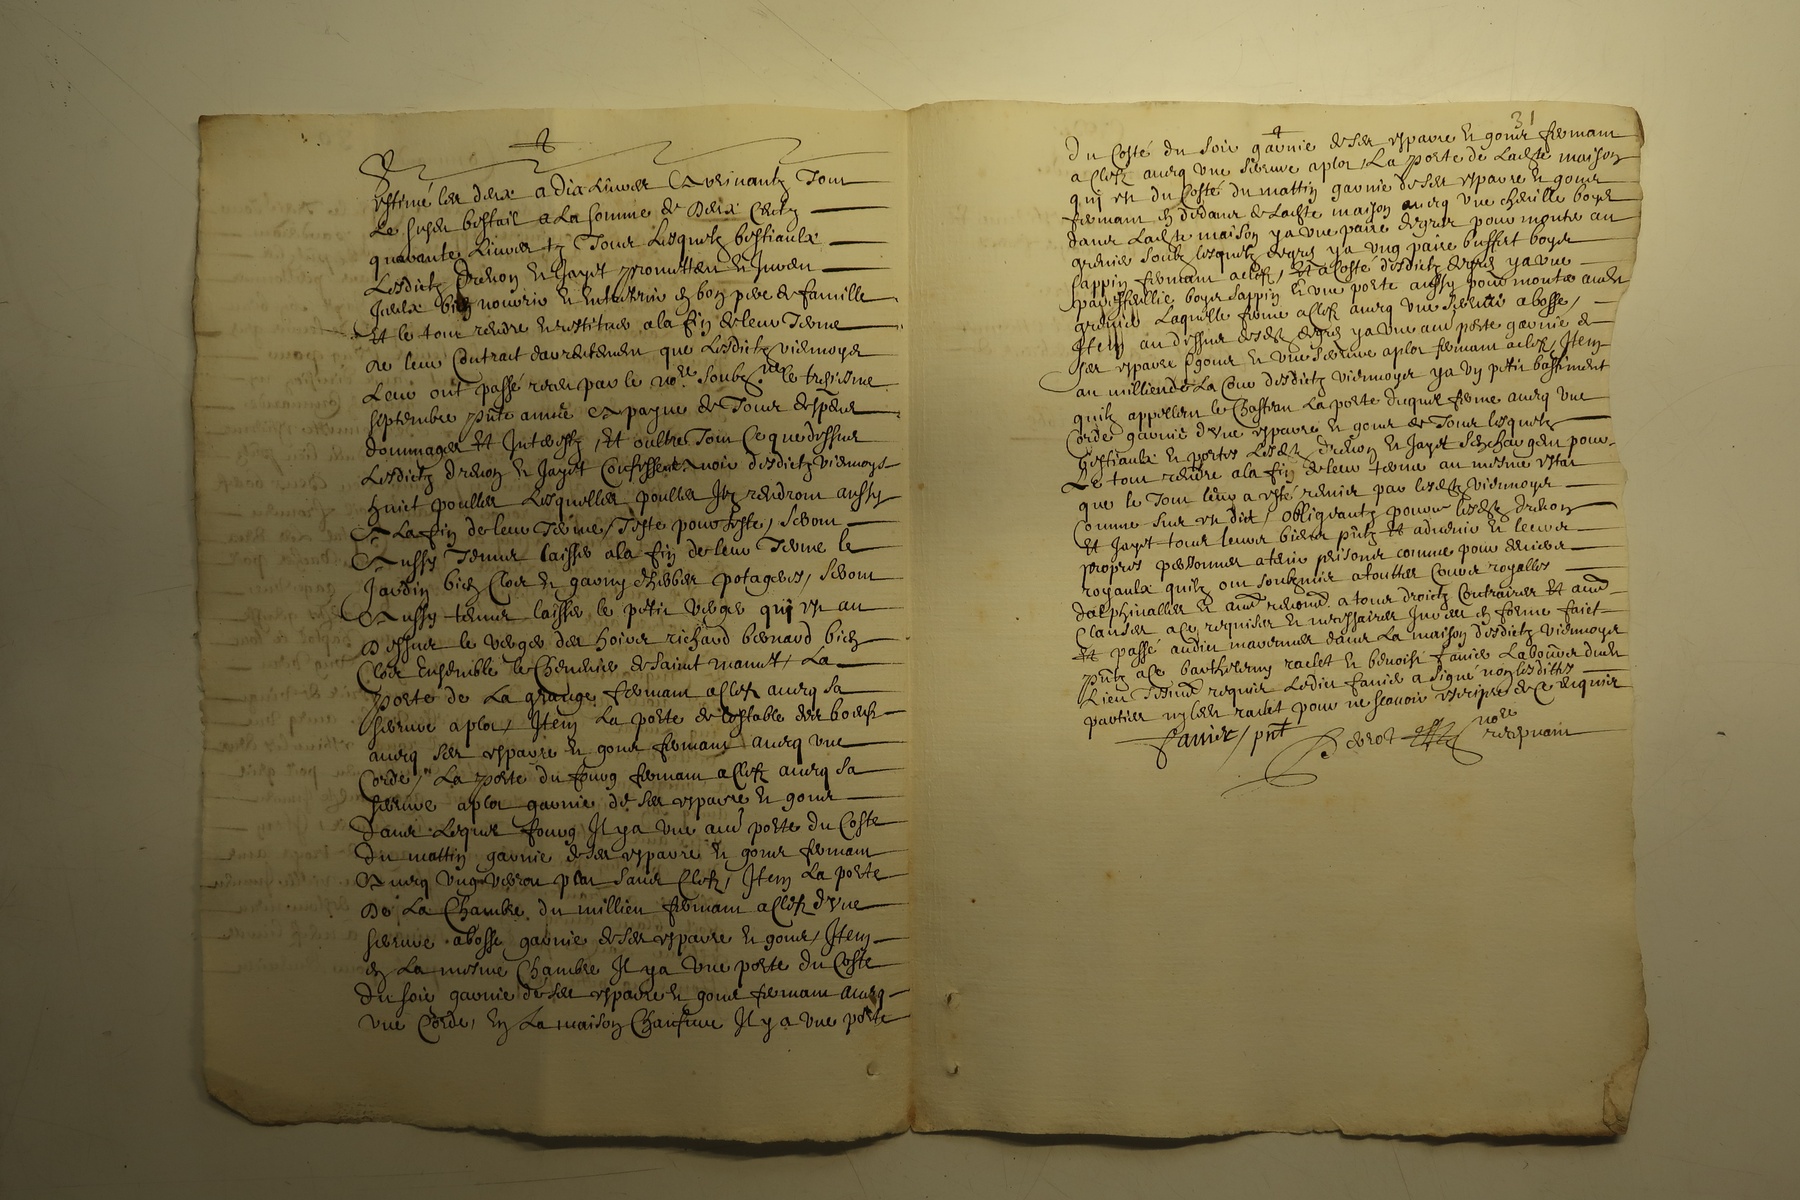 estimé les deux a dix livres revenantz tout
le susdit bestail a la somme de deux centz
quarante livres tz Tous lesquelz bestiaulx
lesdictz Drevon et Jayet promettent et Jurent
Jceulx bien nourrir et entretenir en bon pere de famille
Et le tout rendre et restituer a la fin de leur terme
de leur contrait darrentement que lesdictz viennoys
leur ont passé receu par le nore soubzne le treziesme
septembre pnte année a payne de tous despens
dommages Et Jnterestz, Et oultre tout ce que dessus
lesdictz drevon et Jayet confessent avoir desdictz viennoys
huict poulles lesquelles poulles Jlz rendront aussy
A la fin de leur terme, teste pour teste, seront
Aussy tenus laisser a la fin de leur terme le
Jardin bien clos et garny dherbes potageres, seront
Aussy tenus laisser le petit verger qui est au
dessus le verger des hoirs richard bernard bien
clos ensemble le de saint La
porte de la grange fermant a clefz avecq sa
serrure a plot, Jtem la porte de lestable des boeufz
avecq ses esparre et gons fermant avecq une
corde, La porte du fourg fermant a clefz avecq sa
serrure a plot garnie de ses esparre et gons
Dans lequel fourg Jl y a une aure porte du costé
du mattin garnie de ses esparre et gons fermant
Avecq ung verrou plat sans clefz, Jtem la porte
de la chambre du millieu fermant a clefz dune
serrure a bosse garnie de ses esparre et gons, Jtem
en la mesme chambre Jl y a une porte du costé
du soir garnie de ses esparre et gons fermant avecq
une corde, en la maison Jl y a une porte
31
du costé du soir garnie de ses esparre et gons fermant
a clefz avecq une serrure a plot, La porte de ladte maison
qui est du costé du mattin garnie de ses esparre et gons
fermant en dedans de ladte maison avecq une cheville boys
dans ladte maison y a une paire degres pour monter au
grenier soubz lesquelz degres y a ung paire buffert boys
sappin fermant a clefz, Et a costé desdictz degres y a une
boys sappin et une porte aussy pour monter audt
grenier laquelle ferme a clefz avecq une serrure a bosse,
Jtem au dessus desdtz degres y a une aure porte garnie de
ses esparre et gons et une serrure a plot fermant a clefz, Jtem
au millieu de la cour desdictz viennoys y a un petit bastiment
quilz appellent le chasteau la porte duquel ferme avecq une
corde garnie dune esparre et gons et tous lesquelz
bestiaulx et portes lesdtz drevon et Jayet se chargent pour
le tout rendre a la fin de leur terme au mesme estat
que le tout leur a esté remis par lesdtz viennoys
comme sus est dict, obligeantz pource lesdtz drevon
Et Jayet tous leurs biens pntz et advenir et leurs
propres personnes a tenir prisons comme pour deniers
royaulx quilz ont soubzmis a touttes cours royalles
dalphinalles et aues renonct a tous droictz contraires Et aues
clauses a ce requises et necessaires Jnserees en forme faict
Et passé audit dans la maison desdictz viennoys
pntz a ce barthelemy raclet et benoist fanier laboureurs dudt
lieu tesmoings requis ledict fanier a signé non lesdittes
parties ny ledt raclet pour ne scavoir escripre de ce enquis
fanier, pnt
nore
recepvant